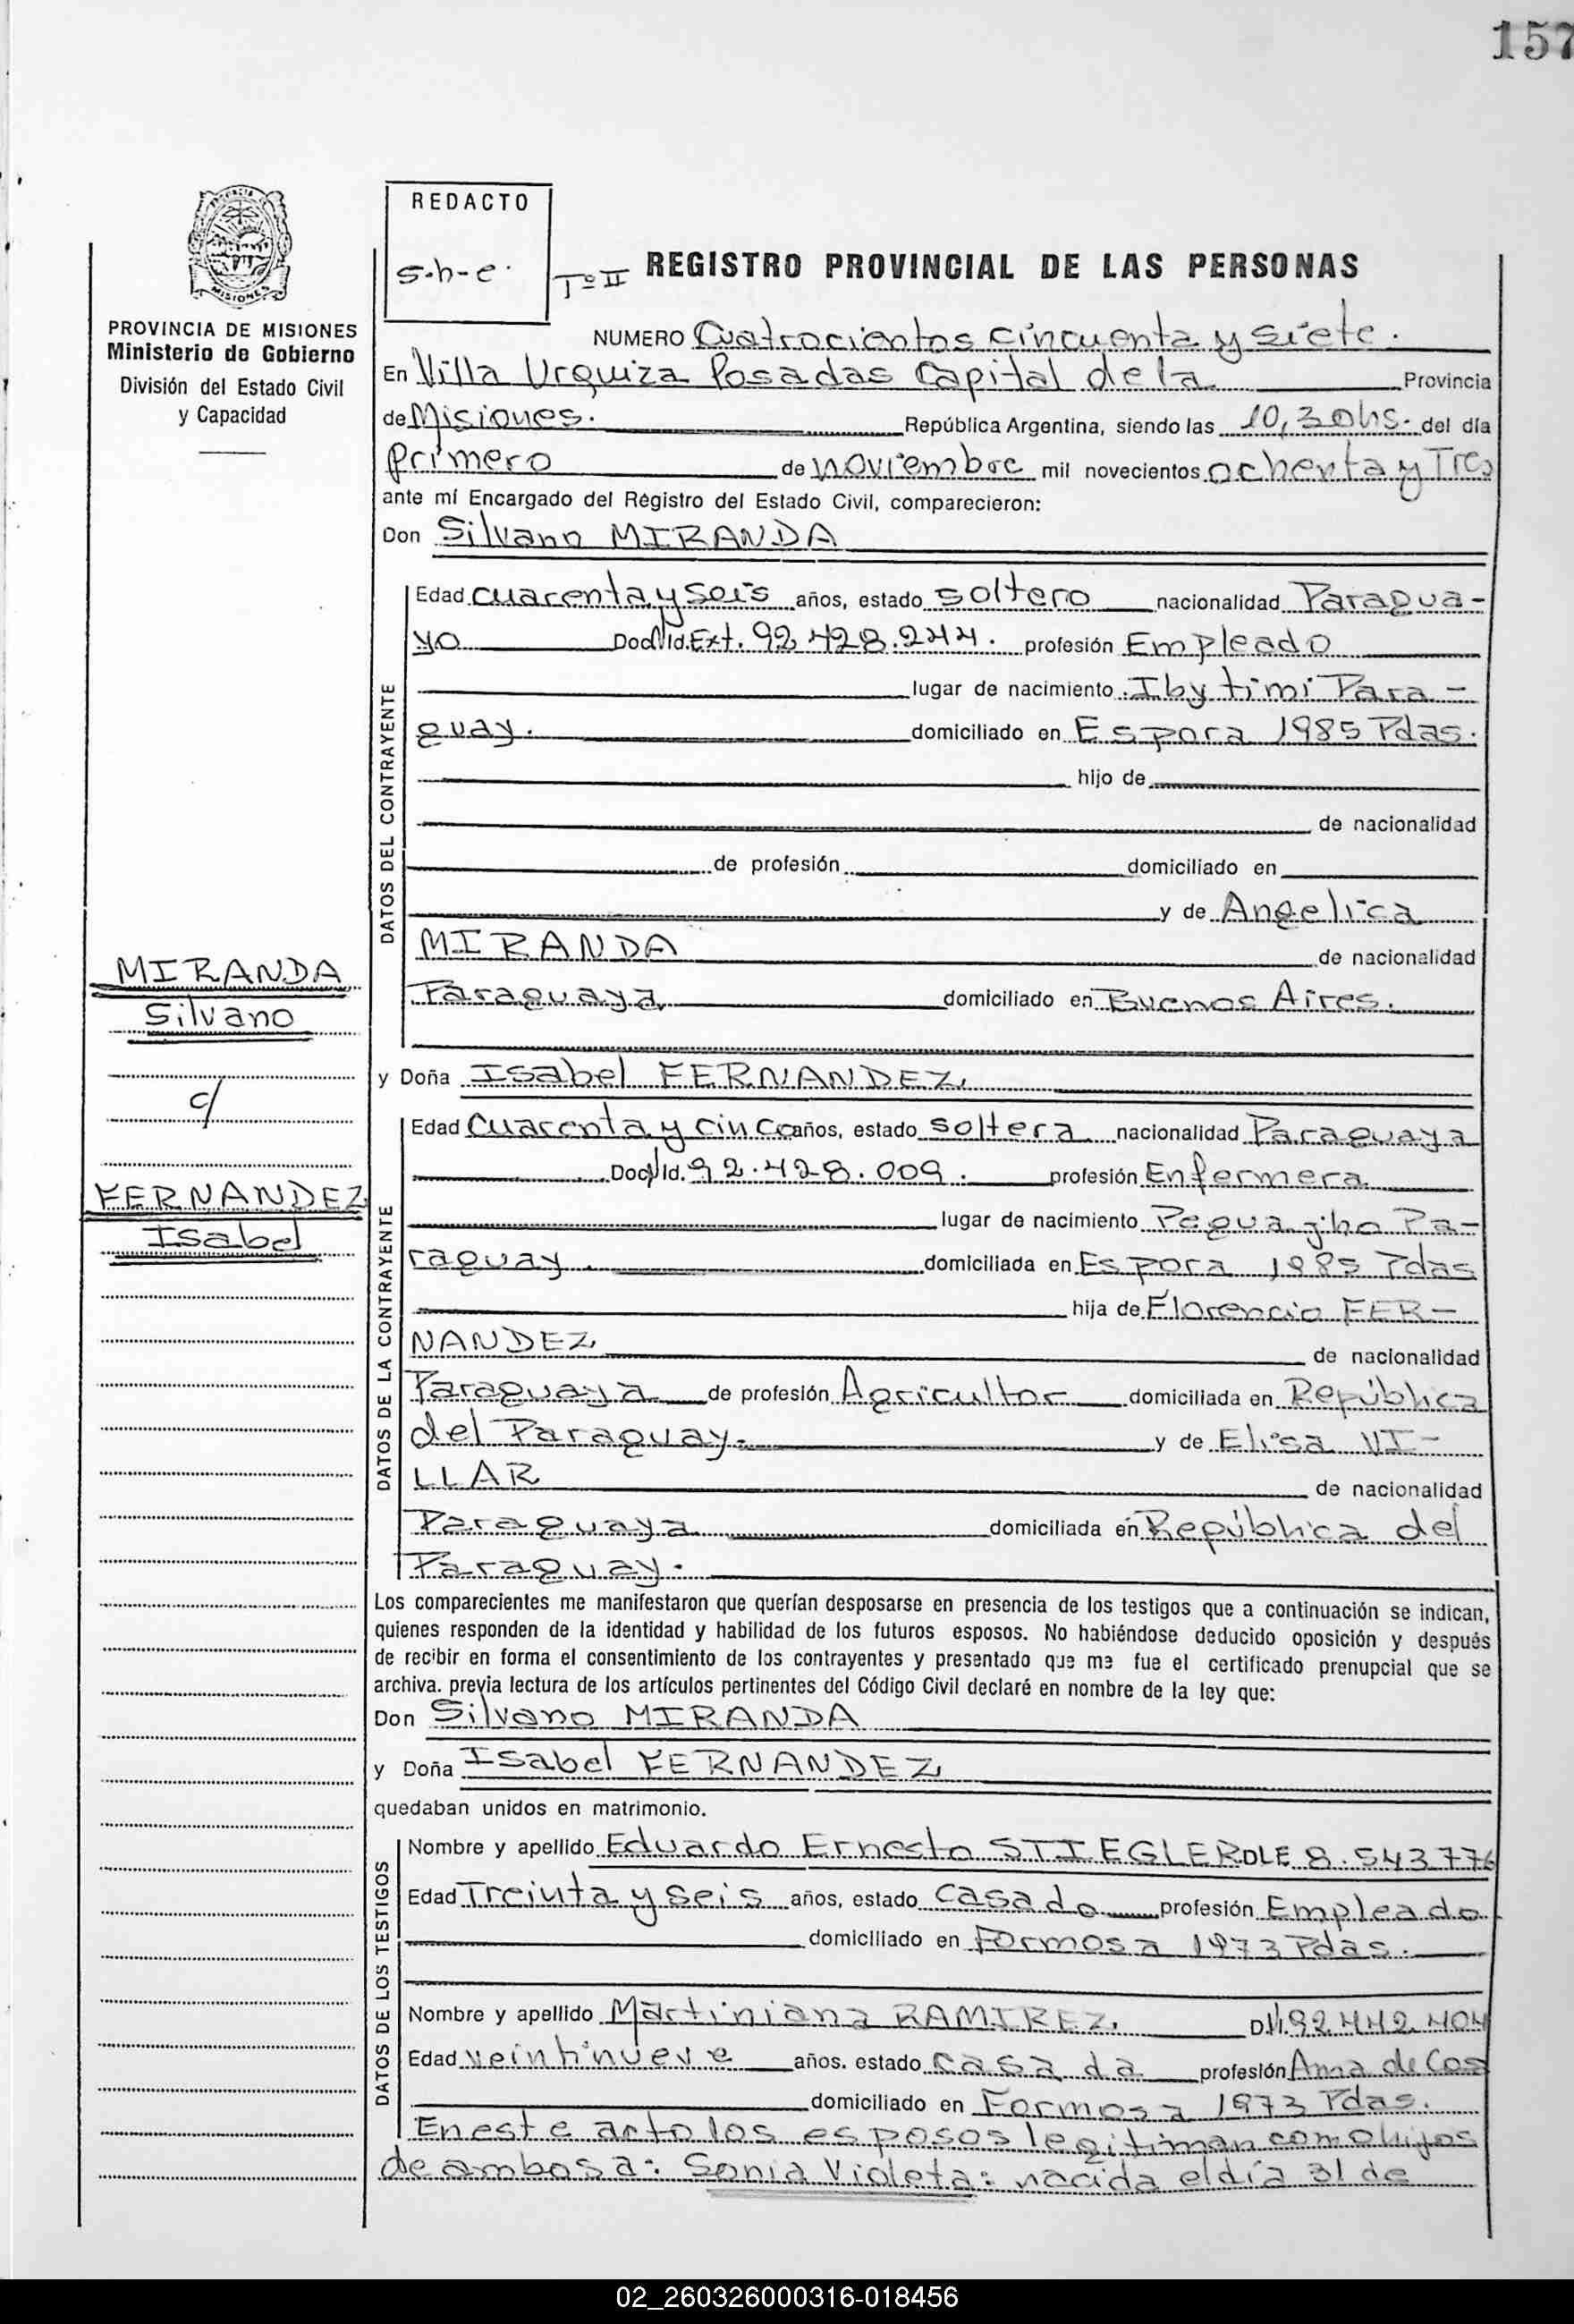 157
REDACTO
s-h-e.
Tº II
REGISTRO PROVINCIAL DE LAS PERSONAS
PROVINCIA DE MISIONES
Ministerio de Gobierno
División del Estado Civil
y Capacidad
NUMERO Cuatrocientos cincuenta y siete.
En Villa Urquiza Posadas Capital de la Provincia
de Misiones. República Argentina, siendo las 10,30hs. del día
primero de noviembre mil novecientos ochenta y Tres
ante mí Encargado del Registro del Estado Civil, comparecieron:
Don Silvano MIRANDA
DATOS DEL CONTRAYENTE
Edad cuarenta y seis años, estado soltero nacionalidad Paragua-
yo Doc. Id. Ext. 92.428.244. profesión Empleado
lugar de nacimiento Ibytimi Para-
guay. domiciliado en Espora 1985 Pdas.
hijo de
de nacionalidad
de profesión domiciliado en
y de Angelica
MIRANDA de nacionalidad
Paraguaya domiciliado en Buenos Aires.
MIRANDA
Silvano
c/
FERNANDEZ
Isabel
y Doña Isabel FERNANDEZ
DATOS DE LA CONTRAYENTE
Edad Cuarenta y cinco años, estado soltera nacionalidad Paraguaya
Doc. Id. 92.428.009. profesión Enfermera
lugar de nacimiento Pa-
raguay. domiciliada en Espora 1985 Pdas
hija de Florencio FER-
NANDEZ de nacionalidad
Paraguaya de profesión Agricultor domiciliada en República
del Paraguay. y de Elisa VI-
LLAR de nacionalidad
Paraguaya domiciliada en República del
Paraguay.
Los comparecientes me manifestaron que querían desposarse en presencia de los testigos que a continuación se indican,
quienes responden de la identidad y habilidad de los futuros esposos. No habiéndose deducido oposición y después
de recibir en forma el consentimiento de los contrayentes y presentado que me fue el certificado prenupcial que se
archiva. previa lectura de los artículos pertinentes del Código Civil declaré en nombre de la ley que:
Don Silvano MIRANDA
y Doña Isabel FERNANDEZ
quedaban unidos en matrimonio.
DATOS DE LOS TESTIGOS
Nombre y apellido Eduardo Ernesto STIEGLER DLE 8.543.776
Edad Treinta y seis años, estado casado profesión Empleado
domiciliado en Formosa 1973 Pdas.
Nombre y apellido Martiniana RAMIREZ. D.I. 92.442.404
Edad veintinueve años. estado casada profesión Ama de Casa
domiciliado en Formosa 1973 Pdas.
En este acto los esposos legitiman como hijos
de ambos a: Sonia Violeta: nacida el día 31 de
02_260326000316-018456